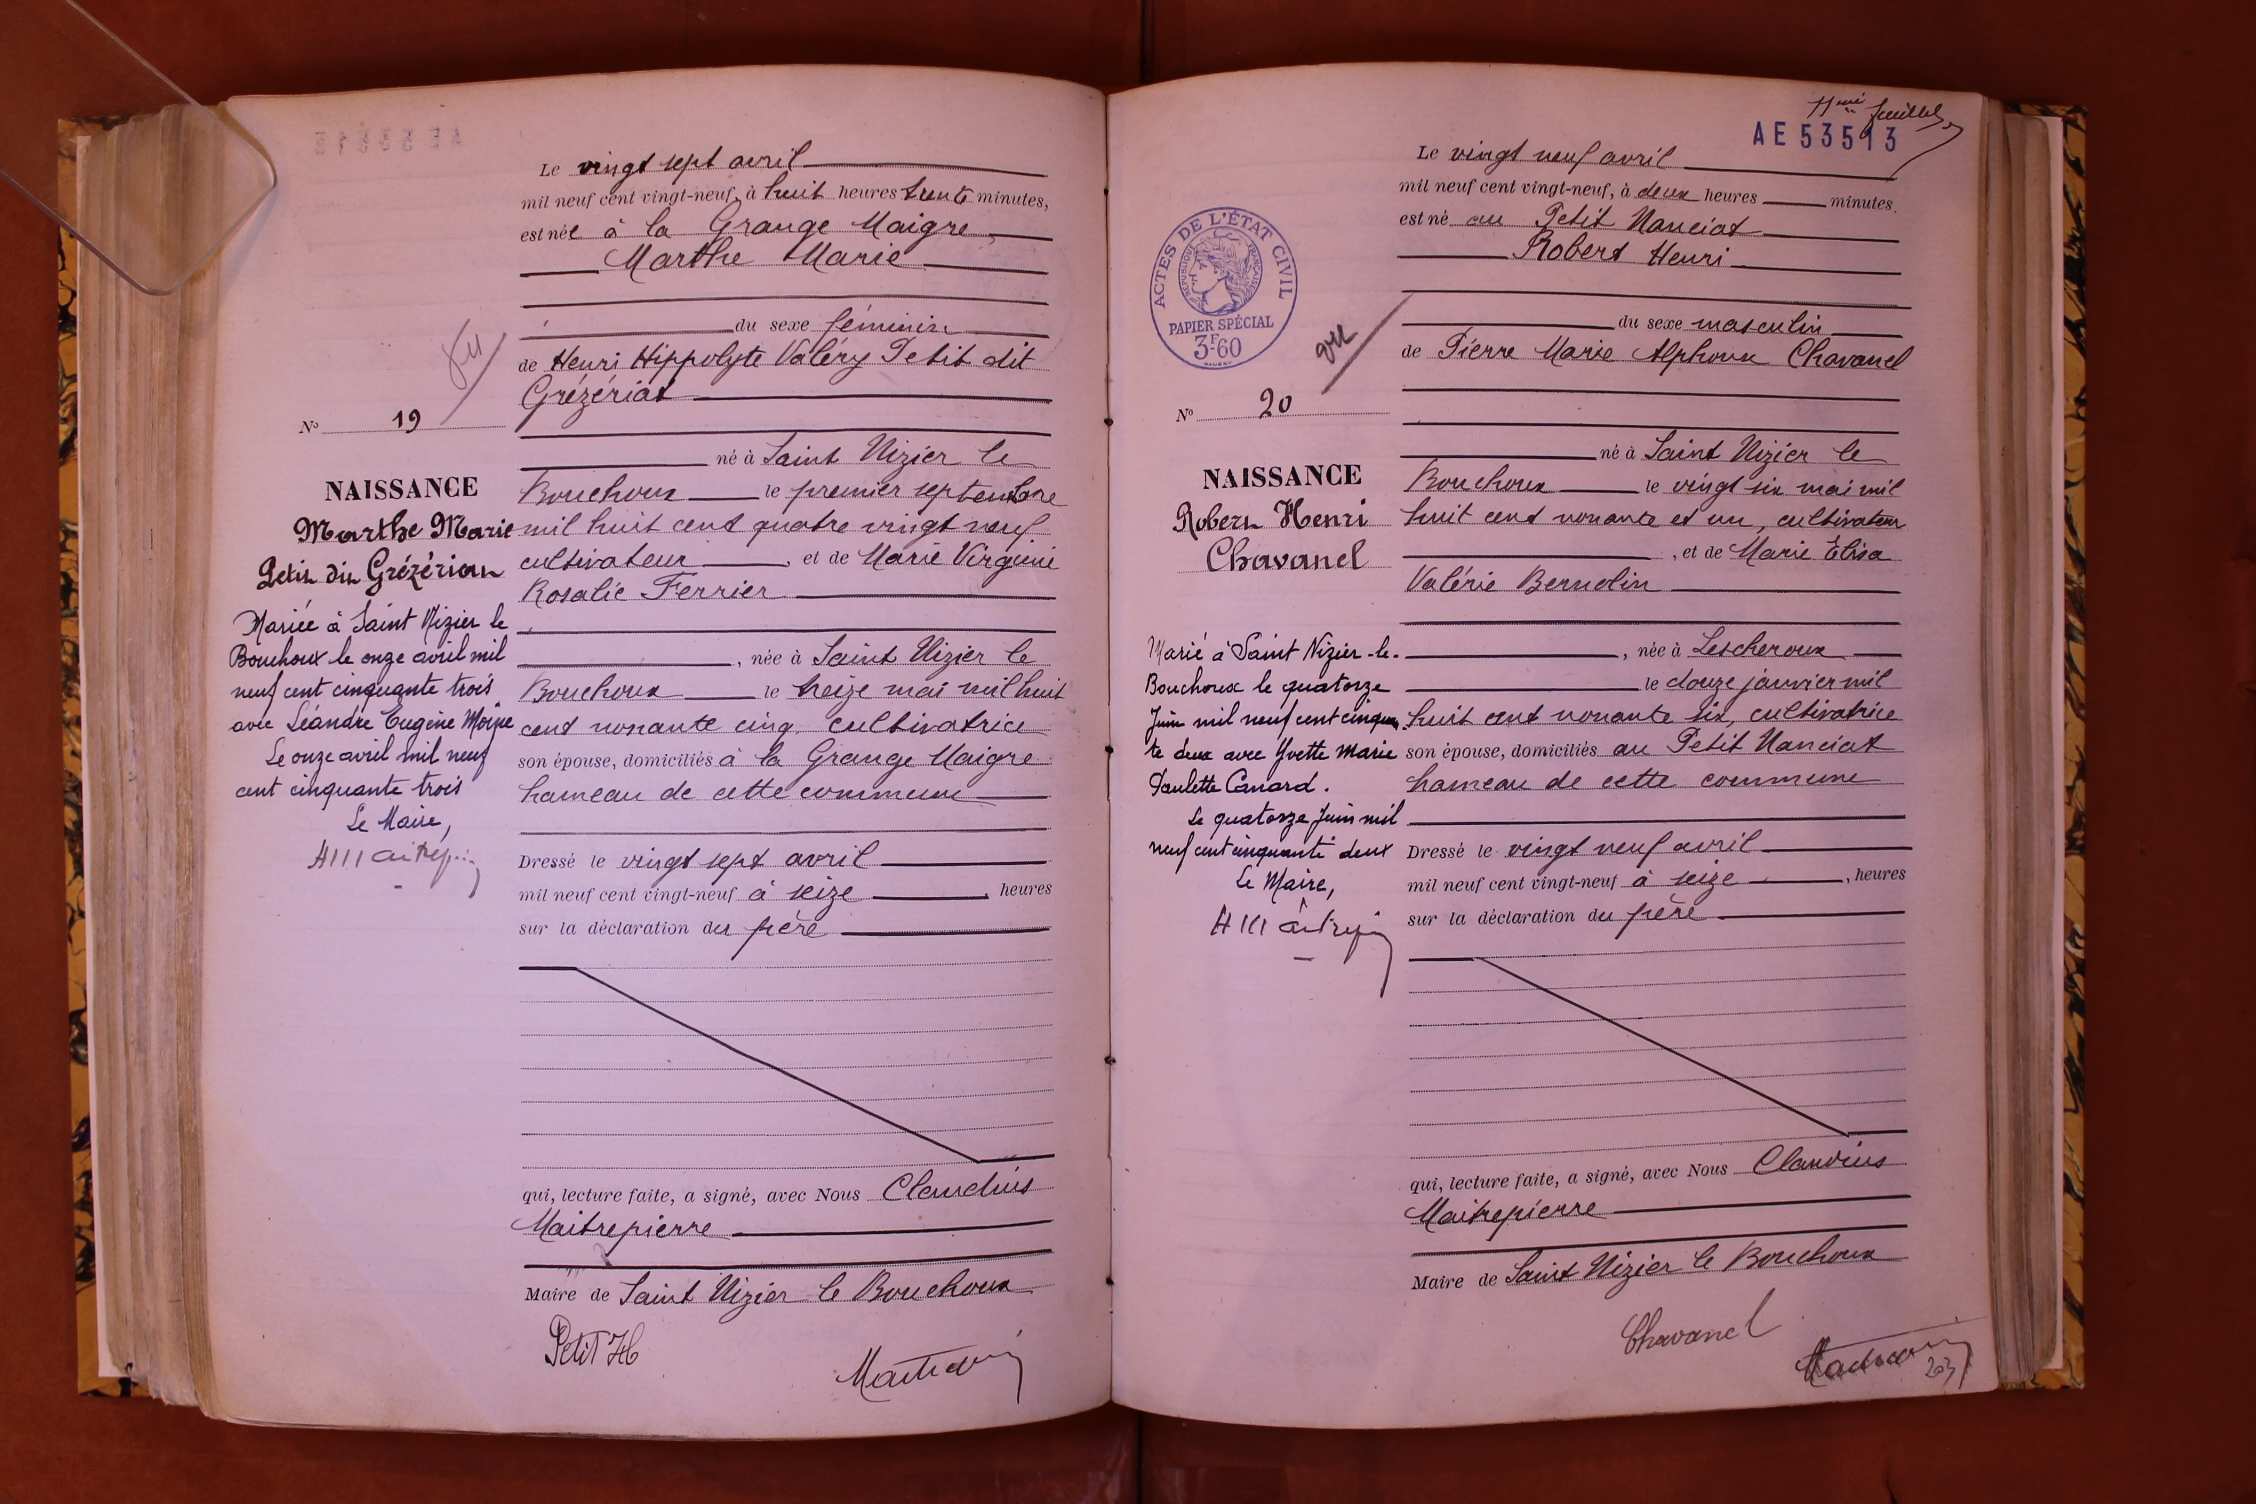 Le vingt sept avril
mil neuf cent vingt-neuf, à huit heures trente minutes,
est née à la Grange Maigre,
Marthe Marie
du sexe féminin
de Henri Hippolyte Valéry Petit dit
Grézériat
né à Saint Nizier le
Bouchoux le premier septembre
mil huit cent quatre vingt neuf
cultivateur, et de Marie Virginie
Rosalie Ferrier
, née à Saint Nizier le
Bouchoux le treize mai mil huit
cent nonante cinq, cultivatrice
son épouse, domiciliés à la Grange Maigre
hameau de cette commune
Dressé le vingt sept avril
mil neuf cent vingt-neuf à seize, heures
sur la déclaration du père
qui, lecture faite, a signé, avec Nous Claudius
Maitrepierre
Maire de Saint Nizier le Bouchoux
Petit H
vu
No 19
NAISSANCE
Marthe Marie
Petit dit Grézériat
Mariée à Saint Nizier le
Bouchoux le onze avril mil
neuf cent cinquante trois
avec Léandre Eugène Moine
Le onze avril mil neuf
cent cinquante trois
Le Maire,
11me feuillet
AE 53513
Le vingt neuf avril
mil neuf cent vingt-neuf, à deux heures minutes.
est né au Petit Nanciat
Robert Henri
du sexe masculin
de Pierre Marie Alphonse Chavanel
né à Saint Nizier le
Bouchoux le vingt six mai mil
huit cent nonante et un, cultivateur
, et de Marie Elisa
Valérie Bernolin
, née à Lescheroux
le douze janvier mil
huit cent nonante six, cultivatrice
son épouse, domiciliés au Petit Nanciat
hameau de cette commune
Dressé le vingt neuf avril
mil neuf cent vingt-neuf à seize, heures
sur la déclaration du père
qui, lecture faite, a signé, avec Nous Claudius
Maitrepierre
Maire de Saint Nizier le Bouchoux
Chavanel
203
ACTES DE L'ÉTAT CIVIL
RÉPUBLIQUE FRANÇAISE
PAPIER SPÉCIAL
3F60
vu
No 20
NAISSANCE
Robert Henri
Chavanel
Marié à Saint Nizier-le-
Bouchoux le quatorze
Juin mil neuf cent cinquan-
te deux avec Yvette Marie
Paulette Canard.
Le quatorze Juin mil
neuf cent cinquante deux
Le Maire,